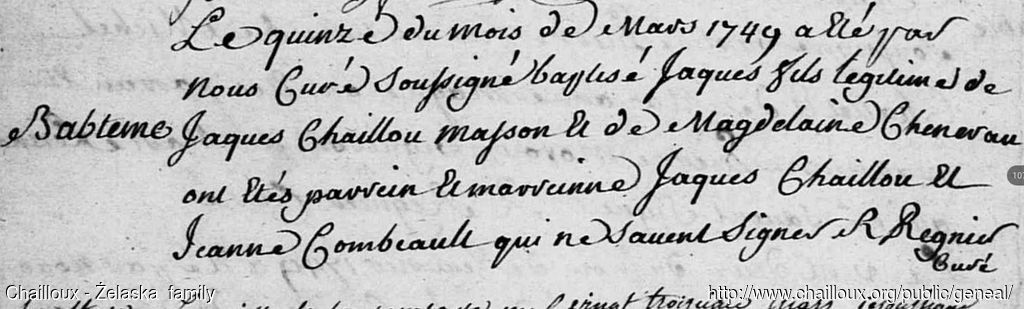 Le quinze du mois de Mars 1749 a été par
nous Curé soussigné baptisé Jaques fils legitime de
Babteme Jaques Chaillou masson et de Magdelaine Chenevau
ont etés parrein et marreinne Jaques Chaillou et
Jeanne Combeault qui ne savent signer R Regnier
Curé
Chailloux - Żelaska family
http://www.chailloux.org/public/geneal/
107